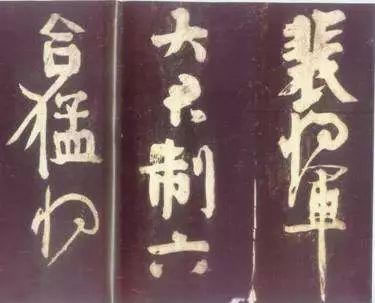 裴将軍
大君制六
合猛将